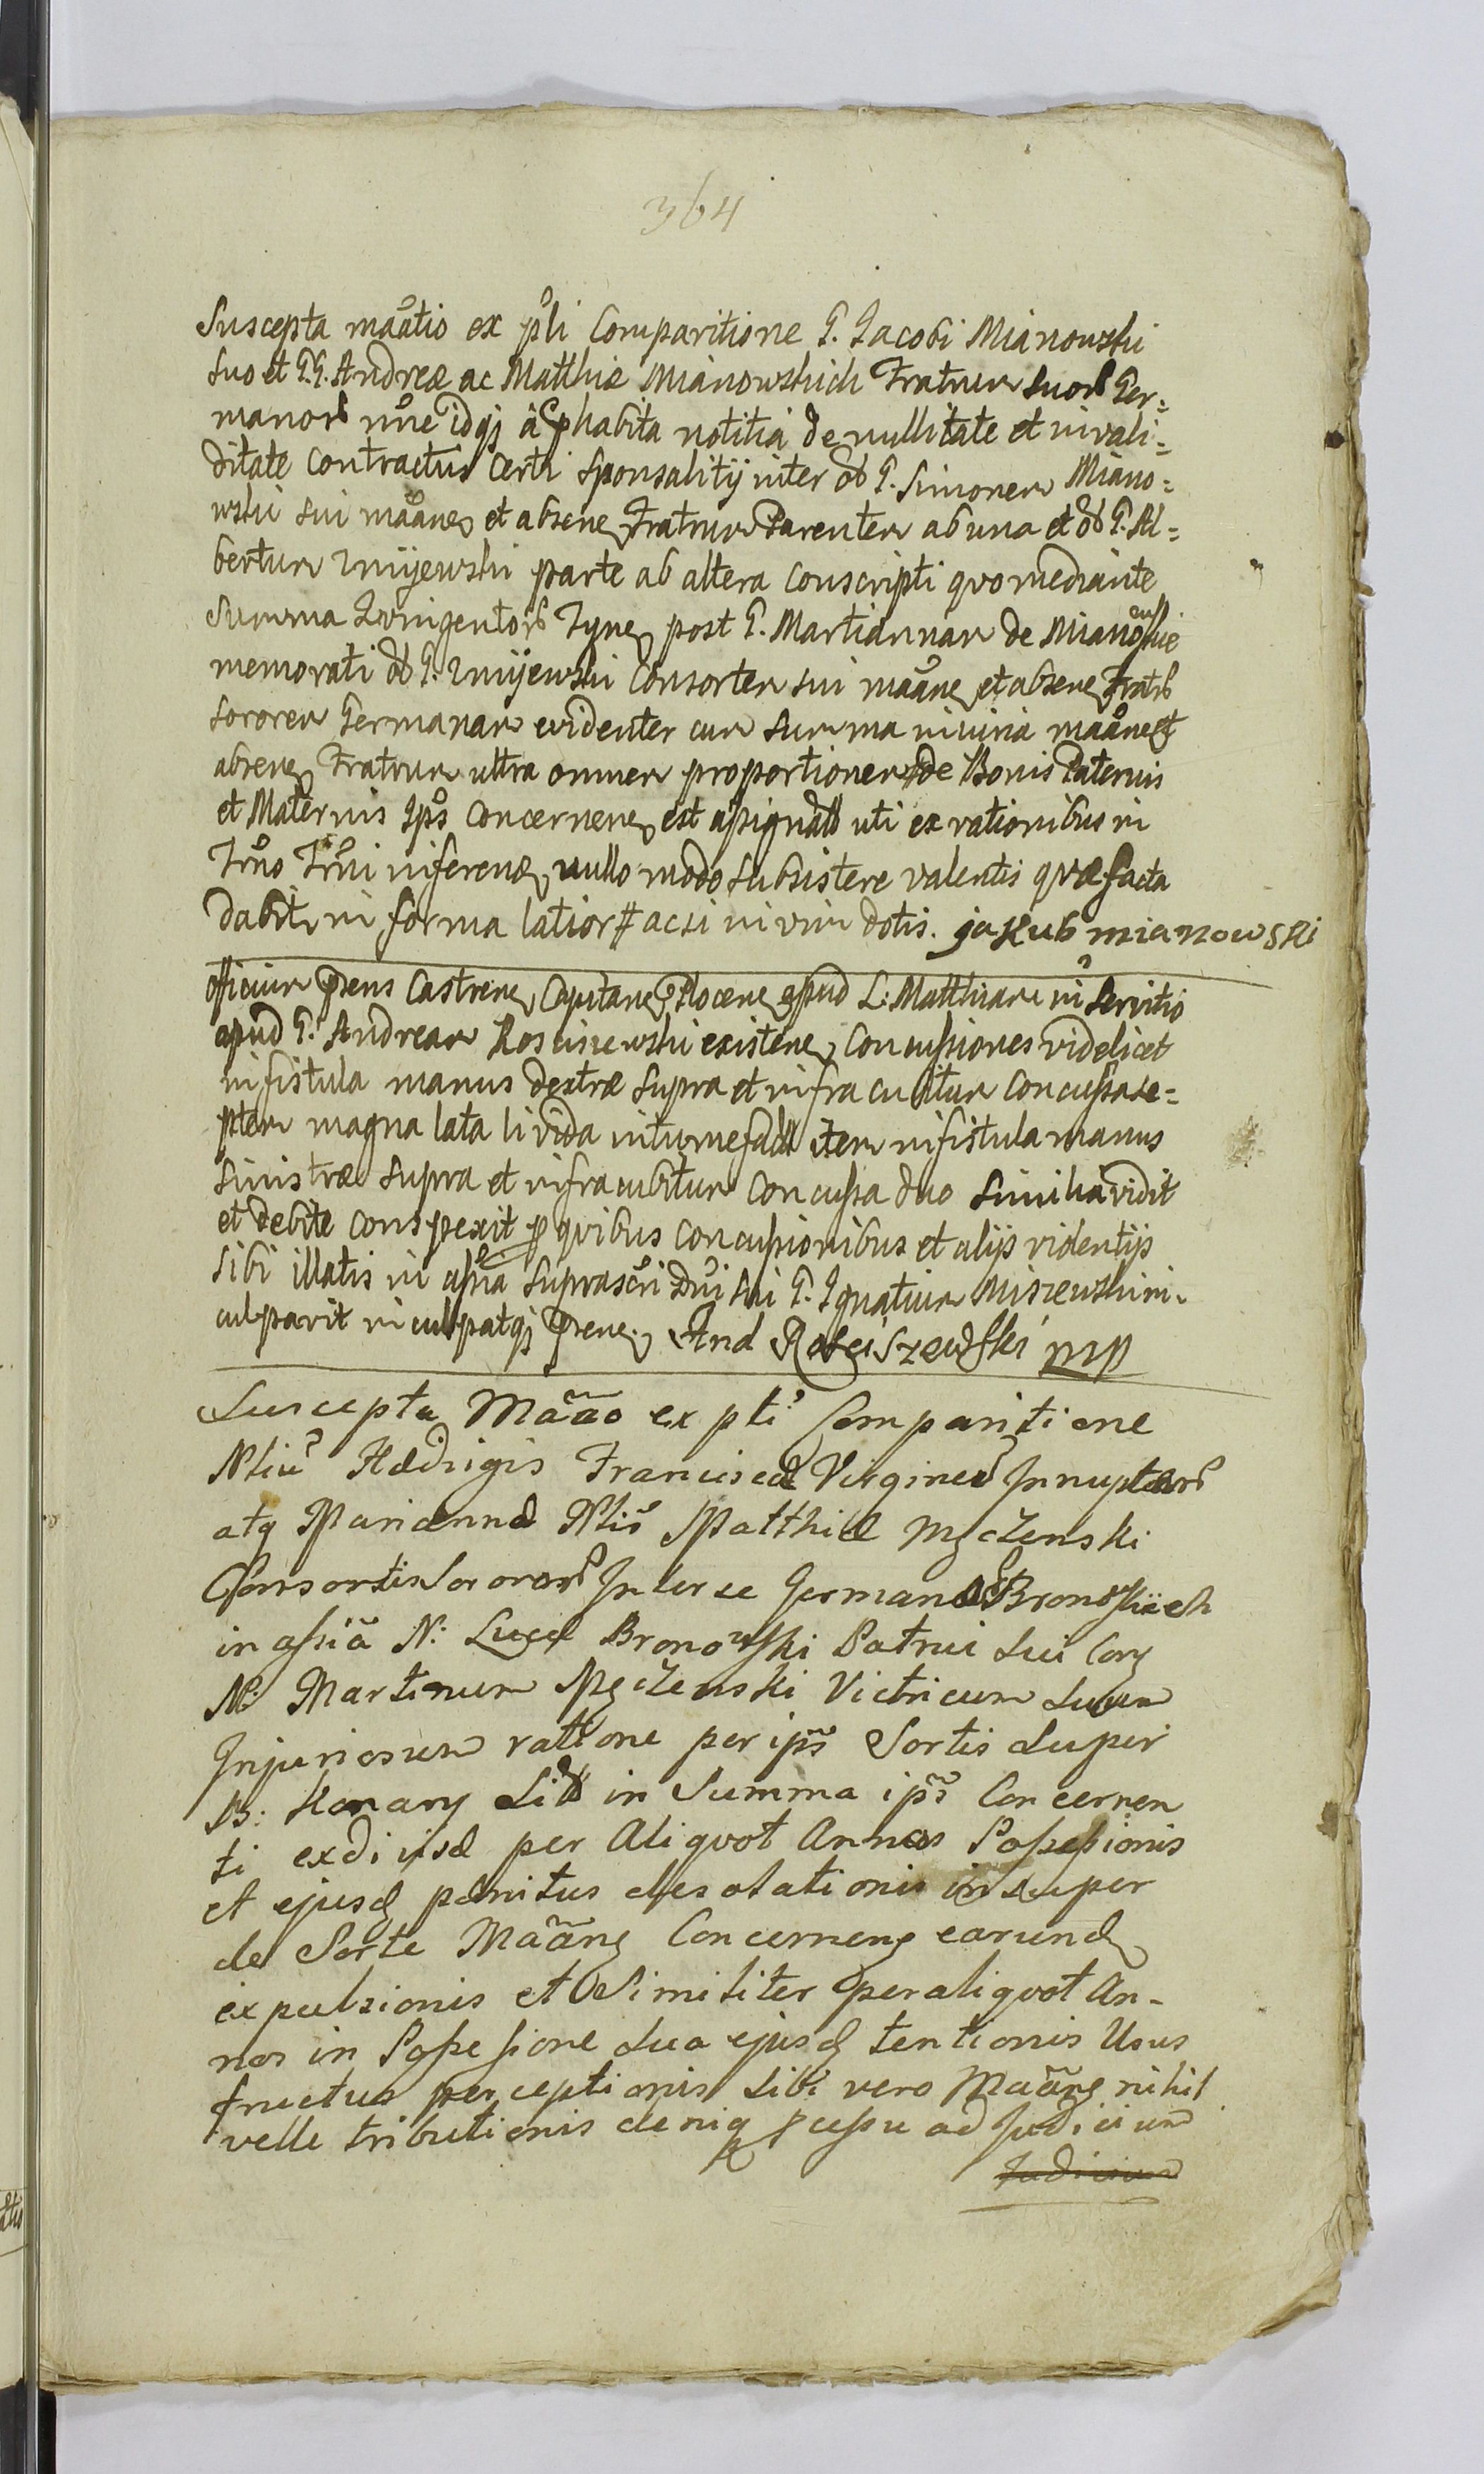 364
Suscepta maãtio ex pñli Comparitione G. Jacobi Mianowski
suo et G.G. Andreæ ac Matthiæ Mianowskich Fratrum suorƀ Ger=
manorƀ nñe idqꝫ à phabita notitia de nullitate et invali=
ditate Contractus Certi Sponsalitij inter G. Simonem Miano=
wski sui maãne et absene Fratrum Parentem ab una et G. Al=
bertum Zmijewski parte ab altera Conscripti quo mediante
Summa Quingentorƀ Tyne post G. Martiannam de Mianowskie
memorati G. Zmijewski Consortem sui maãne et absene Fratrƀ
Sororem Germanam evidenter cum Summa iniuria maãne et
absene Fratrum ultra omnem proportionem de Bonis Paternis
et Maternis Ipõs Concernene est assignata uti ex rationibus in
Trño Trñi inferene nullo modo subsistere valentis quæ facta
dabit in forma latior # ac si in vim dotis. jakub mianowski
Officium præns Castrene Capitane Plocene apud L: Matthiam in Servitio
apud G. Andream Rosciszewski existene Concussiones videlicet
in fistula manus dextræ supra et infra cubitum concussa se=
ptem magna lata livida intumefacta item in fistula manus
sinistræ supra et infra cubitum Concussa duo similia vidit
et debite conspexit pro quibus concussionibus et alijs violentijs
sibi illatis in assña suprascri Dñi sui G. Ignatium Miszewski in-
culpavit inculpatqꝫ præne. And Rosciszewski mp
Suscepta Maãao ex pti Comparitione
Nliũ Hædvigis Franciscæ Virginum Innuptarũ
atq Mariannæ Nlis Matthiæ Męczenski
Consortis Sororũ Inter se Germanarũ Bronowskich
in assña N: Lucæ Bronowski Patrui sui Corꝫ
N: Martinum Męczenski Victricum suum
Injuriosum ratione per ipm̃ Sortis super
B: Konary Sitæ in Summa ipm̃ Concernen
ti exdivisæ per Aliquot Annos Possessionis
et ejusd penitus desolationis insuper
de Sorte Maãne Concernene earund
expulsionis et Similiter per aliquot An-
nos in Possessione sua ejusd tentionis Usus
fructus perceptionis sibi vero Maãne nihil
velle tributionis deniq pcussu ad Judicium
Judicium